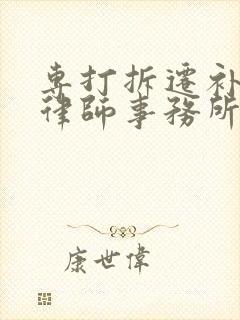 専打拆遷补
律師事務所
康世偉